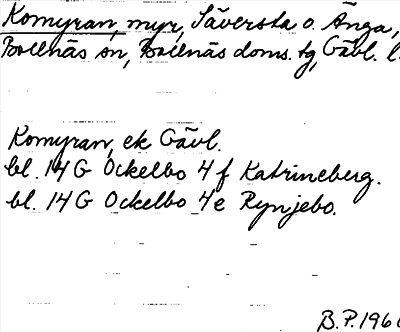 Komyran, myr, Säversta o. Änga,
Bollnäs sn, Bollnäs doms. tg, Gävl. l.
Komyran, ek Gävl.
bl. 14 G Ockelbo 4 f Katrineberg.
bl. 14 G Ockelbo 4e Rynjebo.
B.P. 196